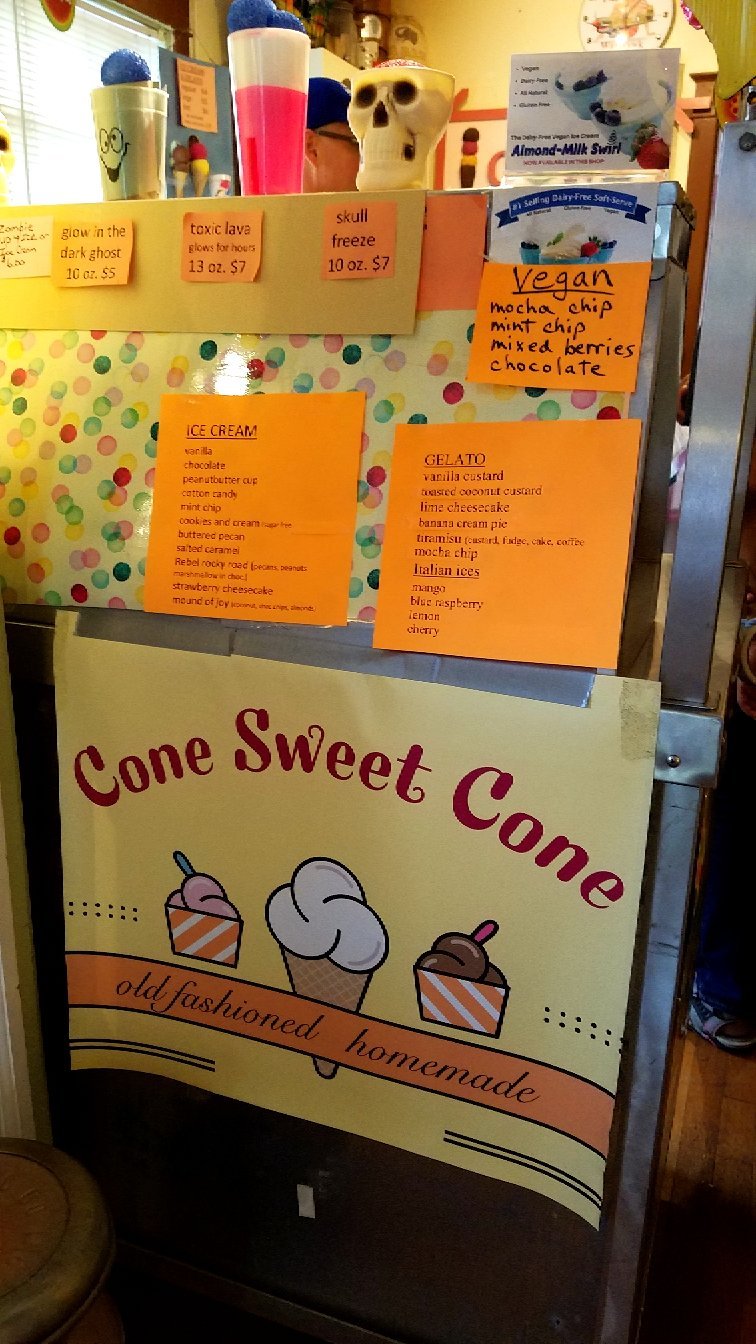 • Vegan
• Dairy-Free
• All Natural
• Gluten Free
The Dairy-Free Vegan Ice Cream
Almond-Milk Swirl
NOW AVAILABLE IN THIS SHOP
#1 Selling Dairy-Free Soft-Serve
All Natural Gluten Free Vegan
Zombie
glow in the
dark ghost
10 oz. $5
toxic lava
glows for hours
13 oz. $7
skull
freeze
10 oz. $7
Vegan
mocha chip
mint chip
mixed berries
chocolate
ICE CREAM
vanilla
chocolate
peanutbutter cup
cotton candy
mint chip
cookies and cream (sugar free
buttered pecan
salted caramel
Rebel rocky road (pecans, peanuts
marshmellow in choc)
strawberry cheesecake
mound of joy (coconut, choc chips, almonds,
GELATO
vanilla custard
toasted coconut custard
lime cheesecake
banana cream pie
tiramisu (custard, fudge, cake, coffee
mocha chip
Italian ices
mango
blue raspberry
lemon
cherry
Cone Sweet Cone
old fashioned homemade